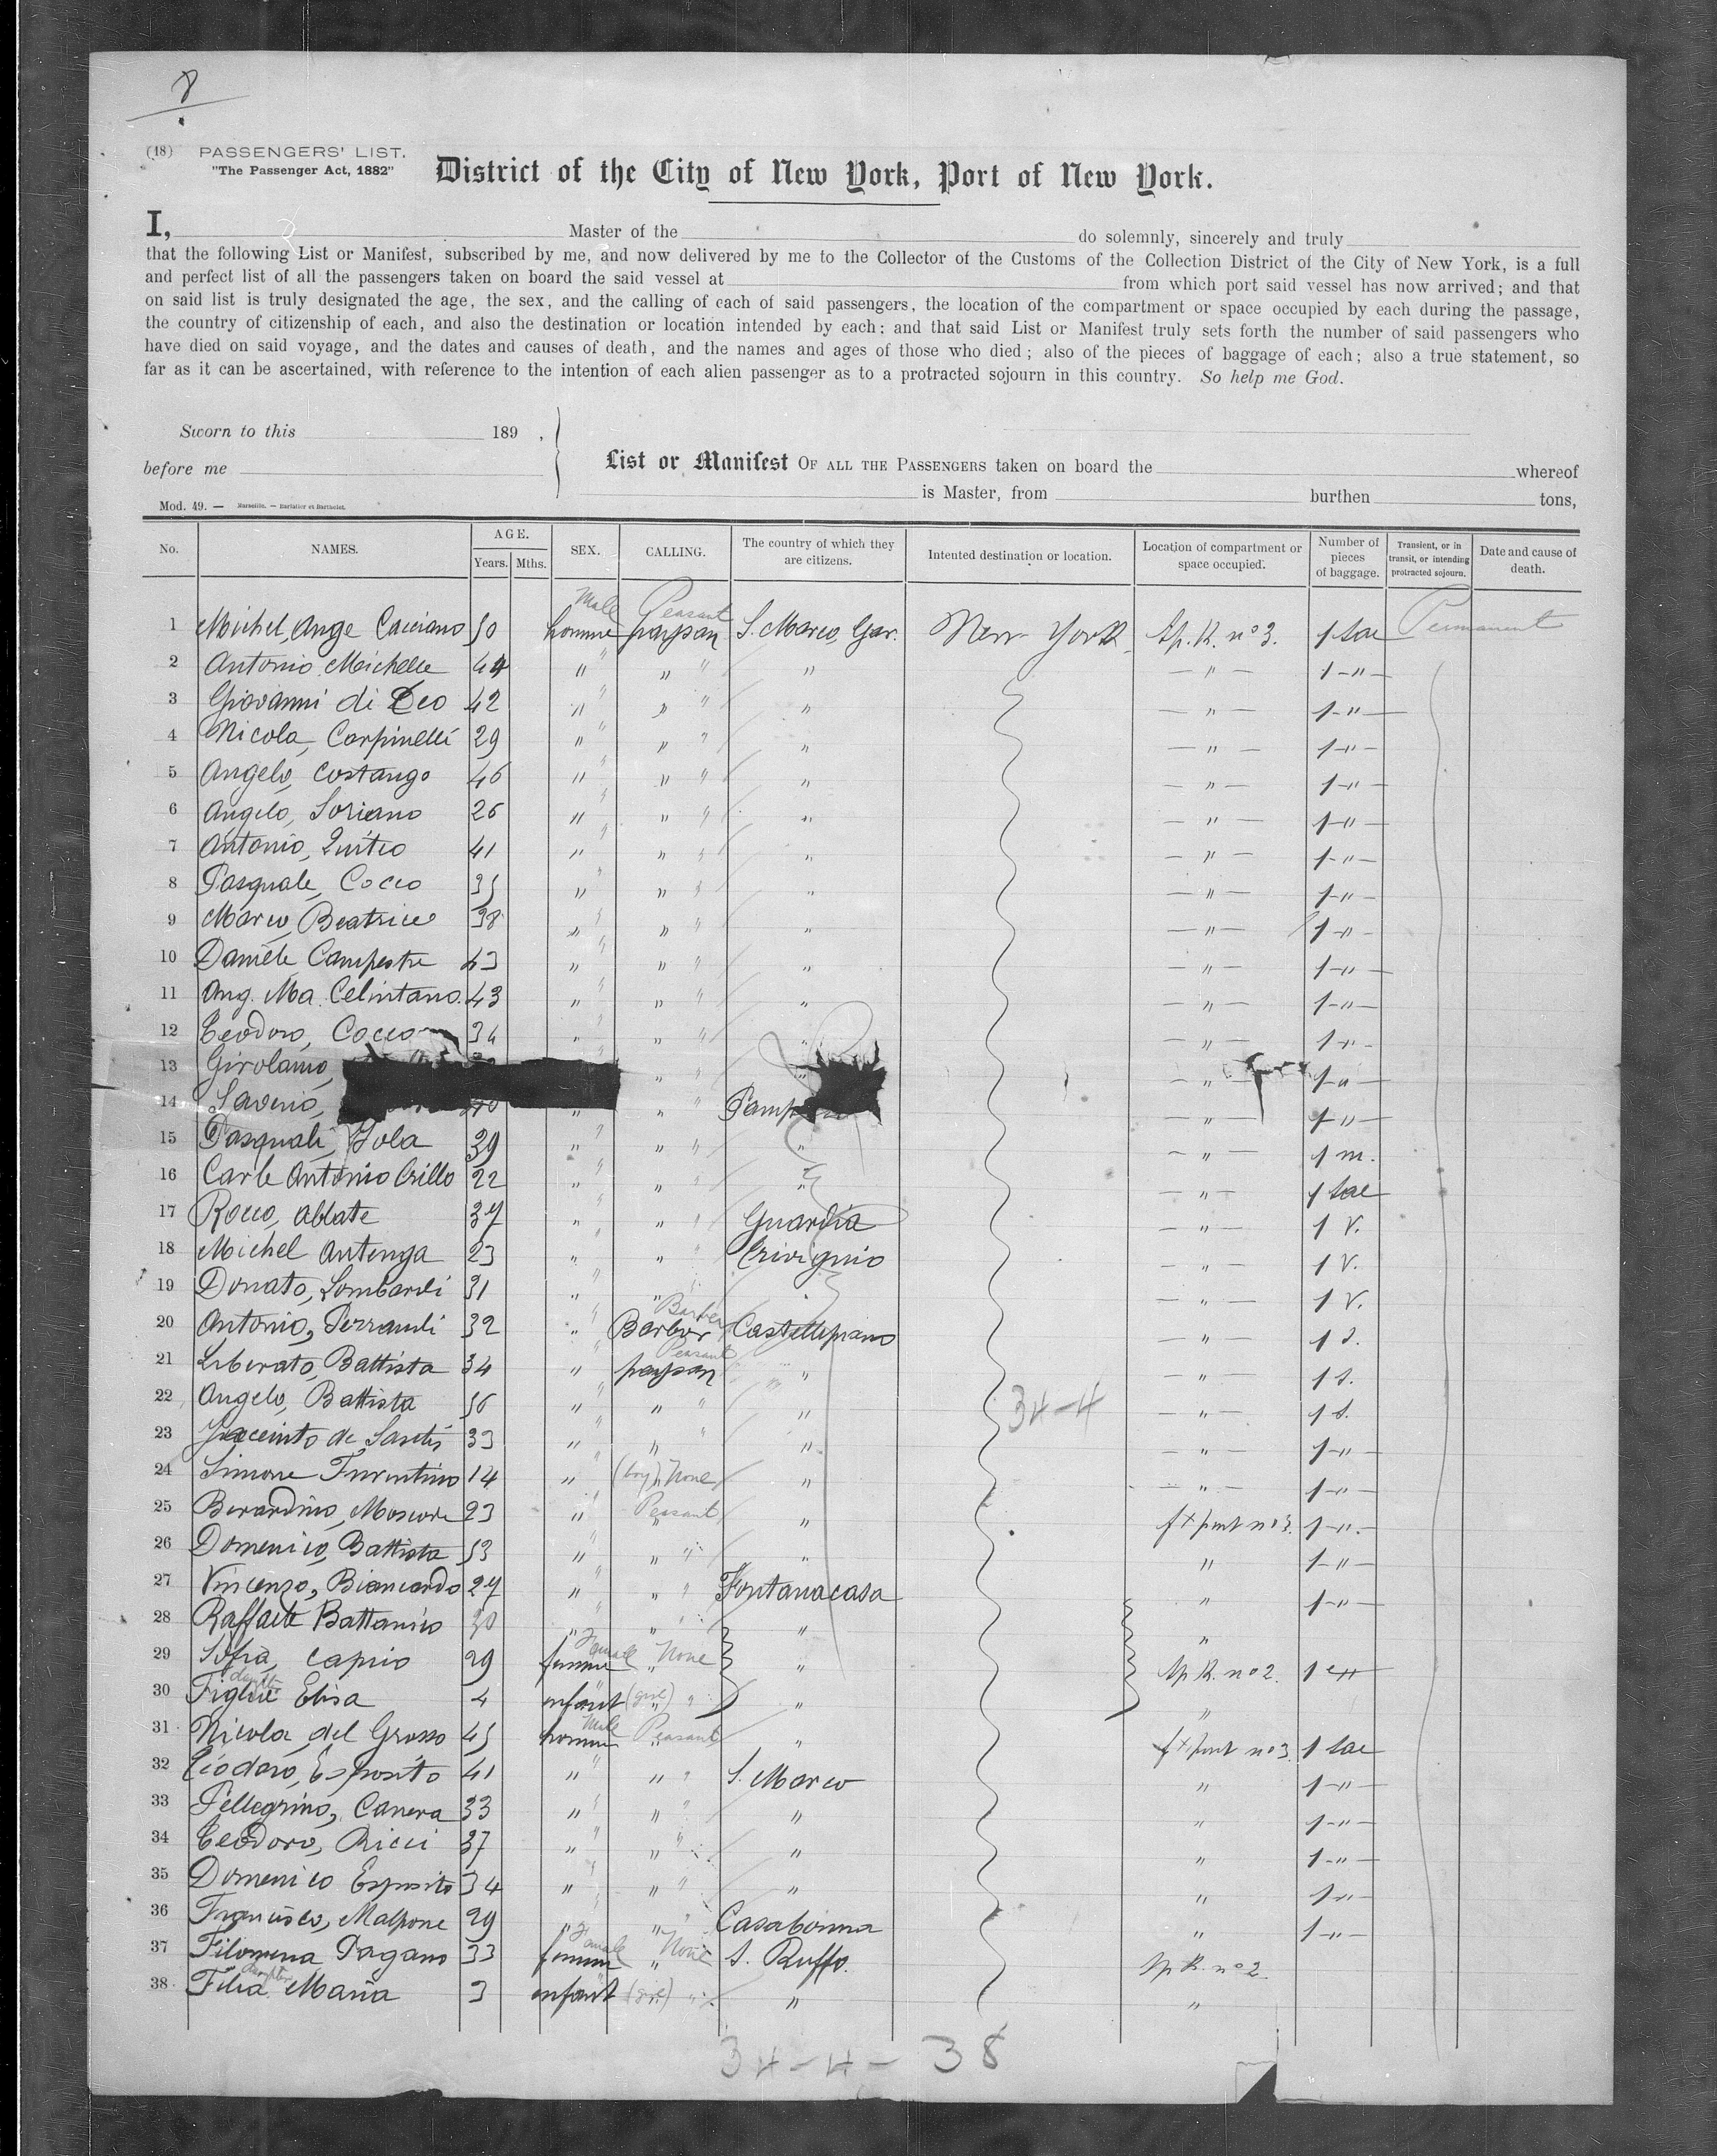 8
(18) PASSENGERS' LIST.
"The Passenger Act, 1882"
District of the City of New York, Port of New York.
I, Master of the do solemnly, sincerely and truly
that the following List or Manifest, subscribed by me, and now delivered by me to the Collector of the Customs of the Collection District of the City of New York, is a full
and perfect list of all the passengers taken on board the said vessel at from which port said vessel has now arrived; and that
on said list is truly designated the age, the sex, and the calling of each of said passengers, the location of the compartment or space occupied by each during the passage,
the country of citizenship of each, and also the destination or location intended by each; and that said List or Manifest truly sets forth the number of said passengers who
have died on said voyage, and the dates and causes of death, and the names and ages of those who died; also of the pieces of baggage of each; also a true statement, so
far as it can be ascertained, with reference to the intention of each alien passenger as to a protracted sojourn in this country. So help me God.
Sworn to this 189 ,
before me
List or Manifest OF ALL THE PASSENGERS taken on board the whereof
is Master, from burthen tons,
Mod. 49. — Marseille. — Barlatier et Barthelet.
No. NAMES. AGE. Years. Mths. SEX. CALLING. The country of which they are citizens. Intented destination or location. Location of compartment or space occupied. Number of pieces of baggage. Transient, or in transit, or intending protracted sojourn. Date and cause of death.
Male Peasant
1 Michel Ange Cacciano 50 homme paysan S. Marco, Gav. New York Sp. R. n° 3. 1 sac Permanent
2 Antonio Michelle 44 " " " " " — " — 1 - " -
3 Giovanni di Leo 42 " " " " " — " — 1 - " -
4 Nicola, Carpinelli 29 " " " " " — " — 1 - " -
5 Angelo, Costango 46 " " " " " — " — 1 - " -
6 Angelo, Soriano 26 " " " " " — " — 1 - " -
7 Antonio, Quiteo 41 " " " " " — " — 1 - " -
8 Pasquale, Cocco 35 " " " " " — " — 1 - " -
9 Marco, Beatrice 38 " " " " " — " — 1 - " -
10 Daniele Campestre 43 " " " " " — " — 1 - " -
11 Ang. Ma. Celintano. 43 " " " " " — " — 1 - " -
12 Teodoro, Cocco 34 " " " " " — " — 1 - " -
13 Girolamo, " " " — " — 1 - " -
14 Saverio, " " " — " — 1 - " -
15 Pasquali, Iola 39 " " " " " — " — 1 m.
16 Carle Antonio Crillo 22 " " " " " — " — 1 sac
17 Rocco, Abbate 37 " " " " Guardia — " — 1 V.
18 Michel Antenga 23 " " " " Trivignio — " — 1 V.
19 Donato, Lombardi 31 " " " " — " — 1 V.
Barber
20 Antonio, 32 " Barber — " — 1 s.
Peasant
21 Liberato, Battista 34 " paysan " — " — 1 s.
22 Angelo, Battista 56 " " " " " 34-4 — " — 1 s.
23 Jiaccinto de Santis 33 " " " " " — " — 1 - " -
24 Simone 14 " (boy) None " — " — 1 - " -
25 Berardino, 23 " Peasant " " n° 3. 1 - " -
26 Domenico, Battista 53 " " " " " 1 - " -
27 Vincenzo, Biancardo 27 " " " " Fontanacasa " 1 - " -
28 Raffaele 30 " " " " " "
Female
29 Sofia, Caprio 29 femme " None " Sp R. n° 2. 1 "
daughter
30 Figlia Elisa 4 enfant (girl) " " "
Male
31 Nicola del Grosso 45 homme " Peasant " n° 3. 1 sac
32 Teodoro, Esposito 41 " " " " S. Marco " 1 - " -
33 Pellegrino, Canera 33 " " " " " " 1 - " -
34 Teodoro, Ricci 37 " " " " " " 1 - " -
35 Domenico Esposito 34 " " " " " " 1 - " -
36 Francisco, Malpone 29 " " " Casabonna " 1 - " -
Female
37 Filomena Pagano 33 femme " None S. Ruffo. Sp R. n° 2.
daughter
38 Filia Maria 3 enfant (girl) " " "
34 - 4 - 38